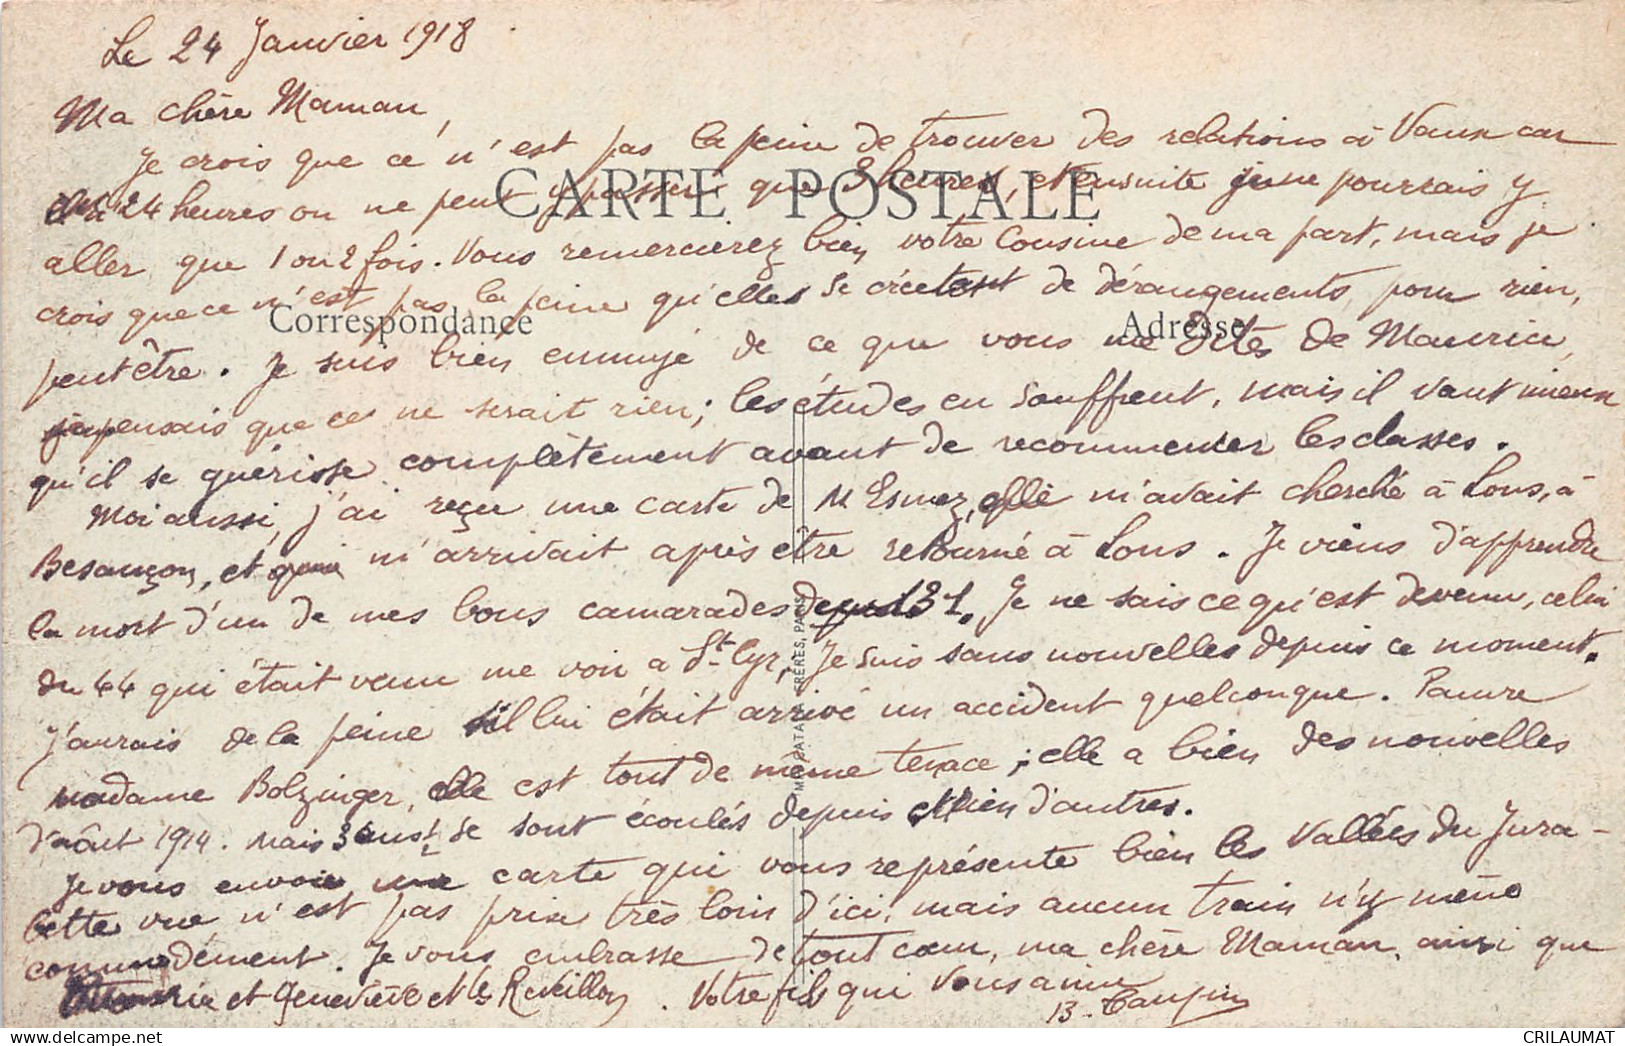 Le 24 Janvier 1918
Ma chère Maman,
Je crois que ce n'est pas la peine de trouver des relations à Vaux car
24 heures on ne peut y passer que heures, et ensuite je ne pourrais y
CARTE POSTALE
aller que 1 ou 2 fois. Vous remercierez bien votre cousine de ma part, mais je
crois que ce n'est pas la peine qu'elles se créent de dérangements pour rien,
Correspondance
Adresse
peut être. Je suis bien ennuyé de ce que vous me dites de Maurice,
je pensais que ce ne serait rien; les études en souffrent, mais il vaut mieux
qu'il se guérisse complètement avant de recommencer les classes.
Moi aussi, j'ai reçu une carte de M Esmez, elle m'avait cherché à Lons, à
Besançon, et m'arrivait après être retourné à Lons. Je viens d'apprendre
la mort d'un de mes bons camarades Je ne sais ce qu'est devenu, celui
du 44 qui était venu me voir a St Cyr, Je suis sans nouvelles depuis ce moment.
J'aurais de la peine s'il lui était arrivé un accident quelconque. Pauvre
madame Bolzinger, elle est tout de même tenace; elle a bien des nouvelles
d'août 1914. mais 3 ans ½ se sont écoulés depuis et bien d'autres.
Je vous envoie une carte qui vous représente bien les Vallées du Jura -
Cette vue n'est pas prise très loin d'ici, mais aucun train n'y mène
commodément. Je vous embrasse de tout cœur, ma chère Maman, ainsi que
et Geneviève et les Reveillon. Votre fils qui vous aime
B. Taupin
FRÈRES, PARIS
CRILAUMAT